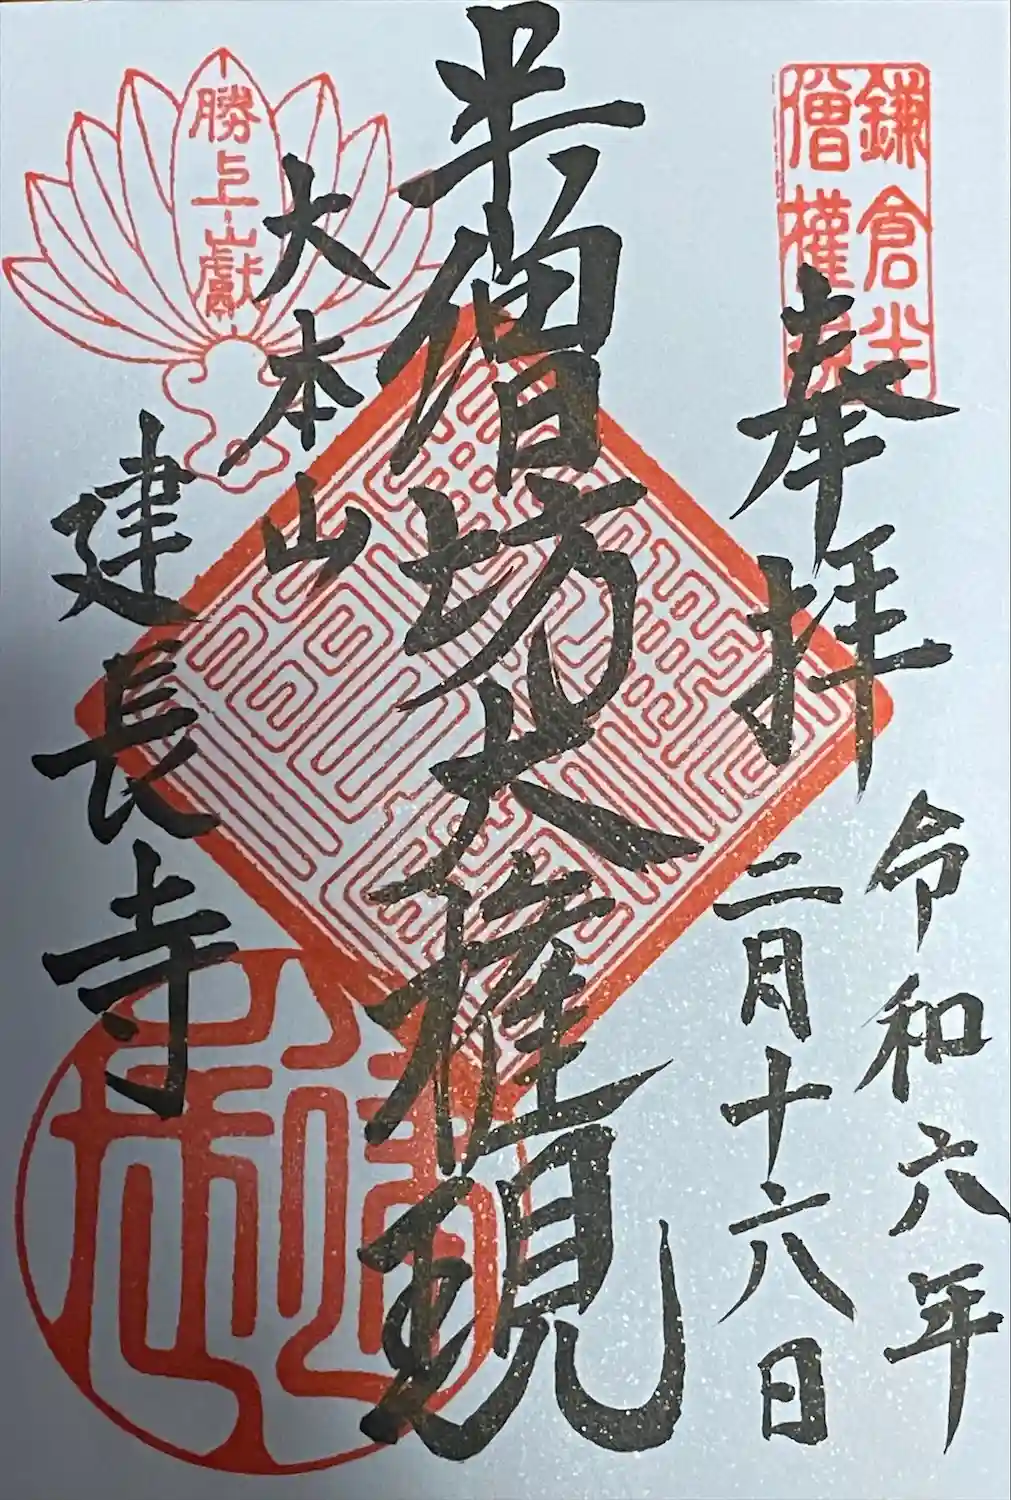 奉拝
令和六年
二月十六日
半僧坊大権現
大本山
建長寺
鎌倉半
僧權現
勝上嶽